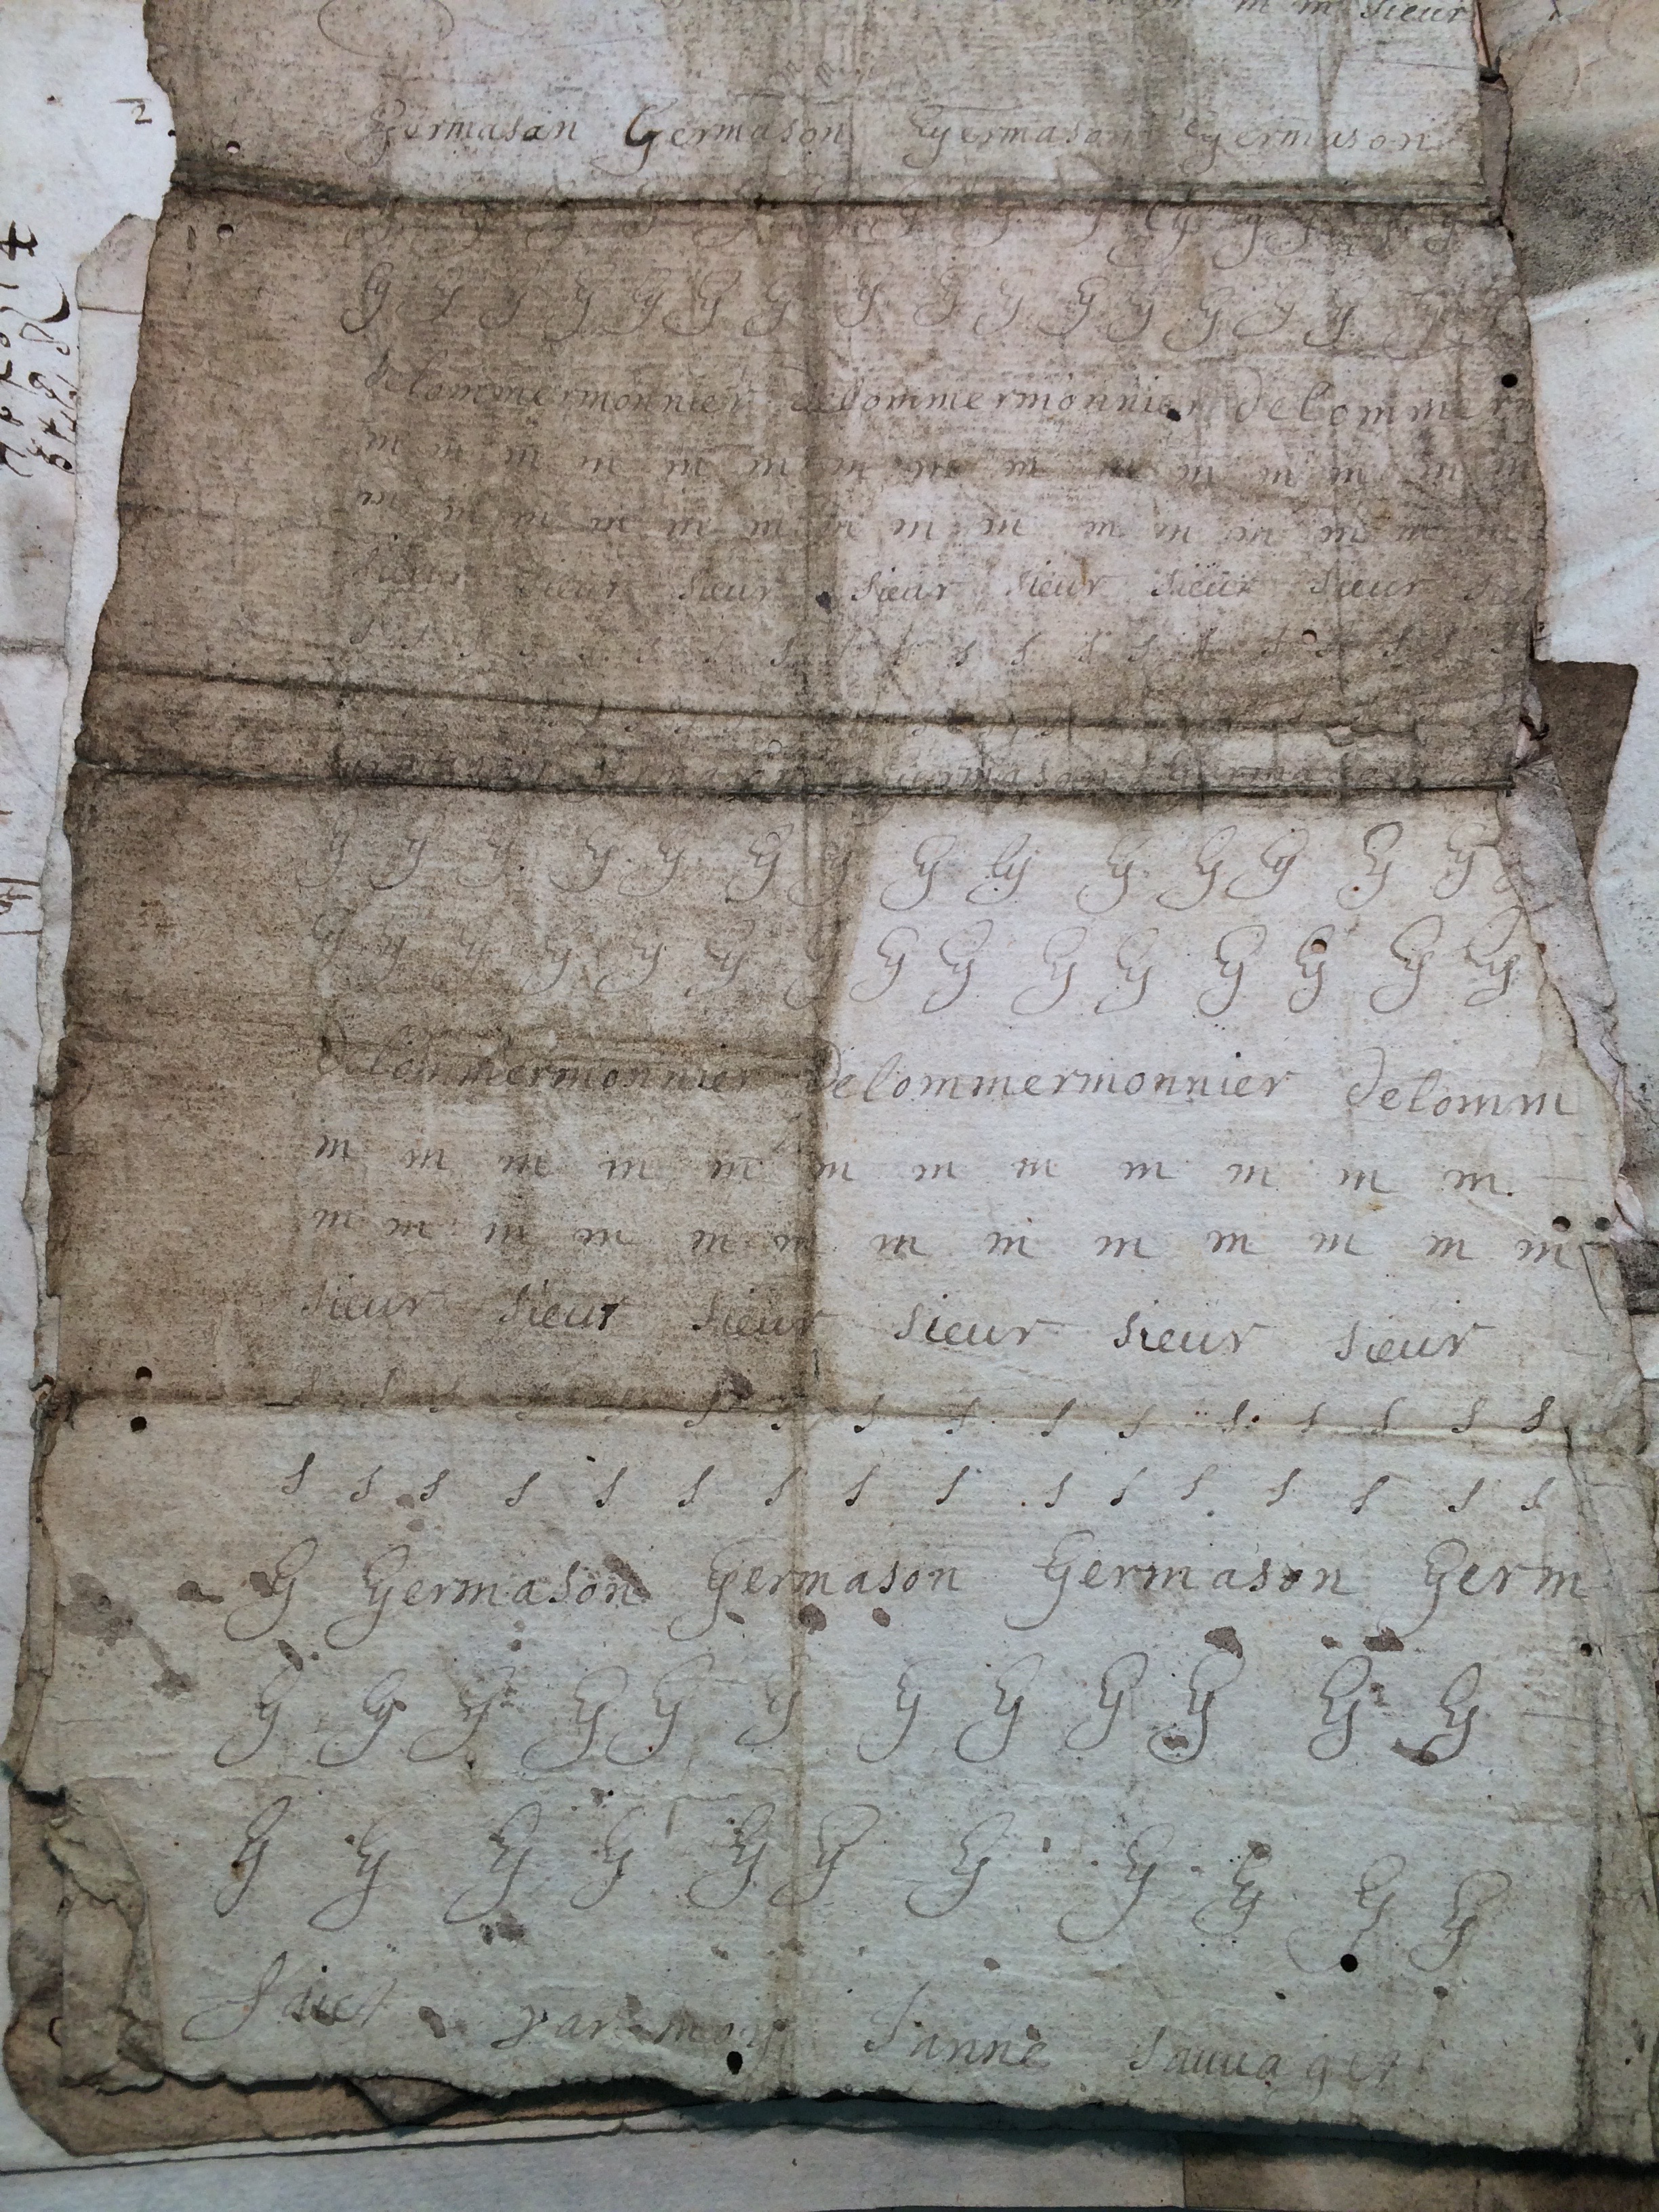 m m sieur
2
Germasan Germason Germason Germason
G G G G G G G G G G G G G G
G G G G G G G G G G G G G G G G G
delommermonnier delommermonnier delommerm
m m m m m m m m m m m m m m m
m m m m m m m m m m m m m m m
sieur sieur sieur sieur sieur sieur sieur sieu
s s s s s s s s s s s s s s s s s s
Germason Germason Germason
G G G G G G G G G G G G G G
G G G G G G G G G G G G G G G
delommermonnier delommermonnier delomm
m m m m m m m m m m m m
m m m m m m m m m m m m m
sieur sieur sieur sieur sieur sieur
s s s s s s s s s s s s s s s s
s s s s s s s s s s s s s s s s
G Germason Germason Germason Germ
G G G G G G G G G G G G
G G G G G G G G G G G
faict par moy Janne Sauuager